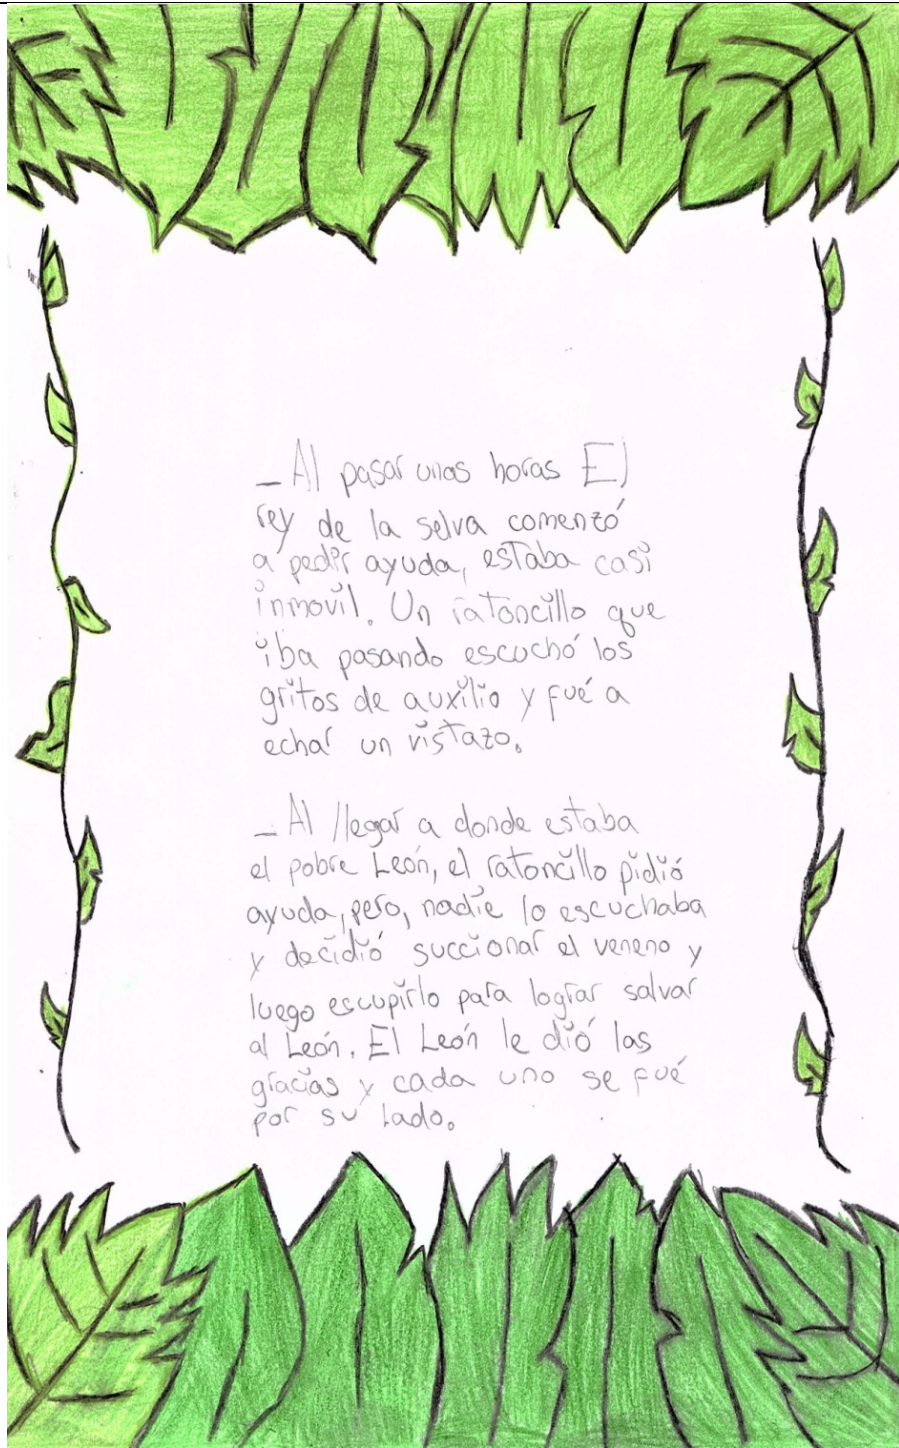 _ Al pasar unas horas El
rey de la selva comenzó
a pedir ayuda, estaba casi
inmovil. Un ratoncillo que
iba pasando escuchó los
gritos de auxilio y fué a
echar un vistazo.
_ Al llegar a donde estaba
el pobre León, el ratoncillo pidió
ayuda, pero, nadie lo escuchaba
y decidió succionar el veneno y
luego escupirlo para lograr salvar
al León. El León le dió las
gracias y cada uno se fué
por su lado.